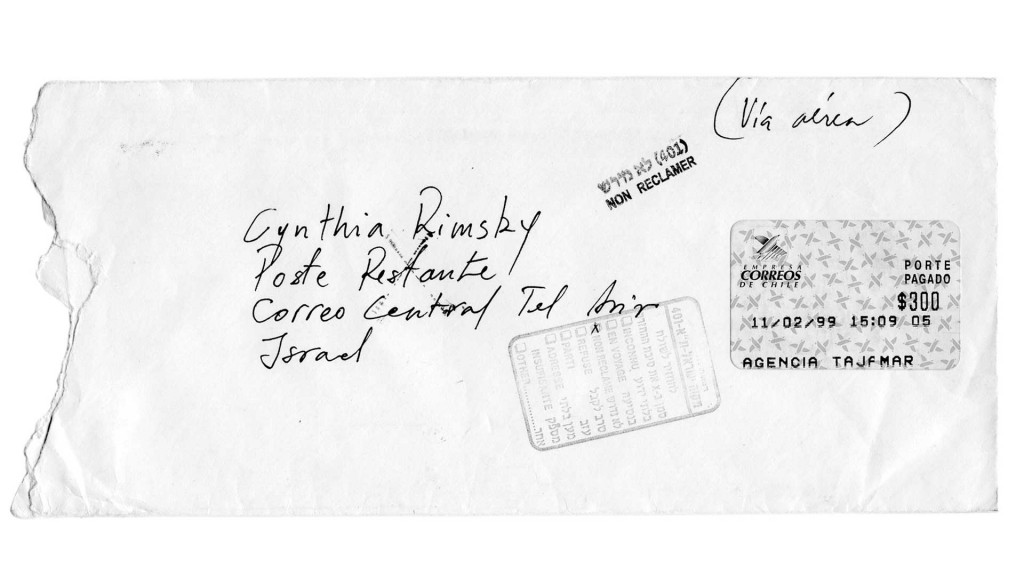 (Vía aérea)
לא נדרש (401)
NON RECLAMER
Cynthia Rimsky
Poste Restante
Correo Central Tel Aviv
Israel
EMPRESA
CORREOS
DE CHILE
PORTE
PAGADO
$300
11/02/99 15:09 05
AGENCIA TAJAMAR